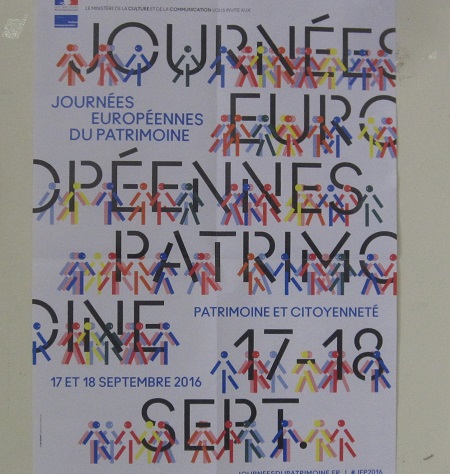 LE MINISTÈRE DE LA CULTURE ET DE LA COMMUNICATION VOUS INVITE AUX
JOURNÉES
JOURNÉES
EUROPÉENNES
DU PATRIMOINE
EURO
OPÉENNES
PATRIMO
OINE
PATRIMOINE ET CITOYENNETÉ
17-18
17 ET 18 SEPTEMBRE 2016
SEPT.
JOURNEESDUPATRIMOINE.FR | #JEP2016